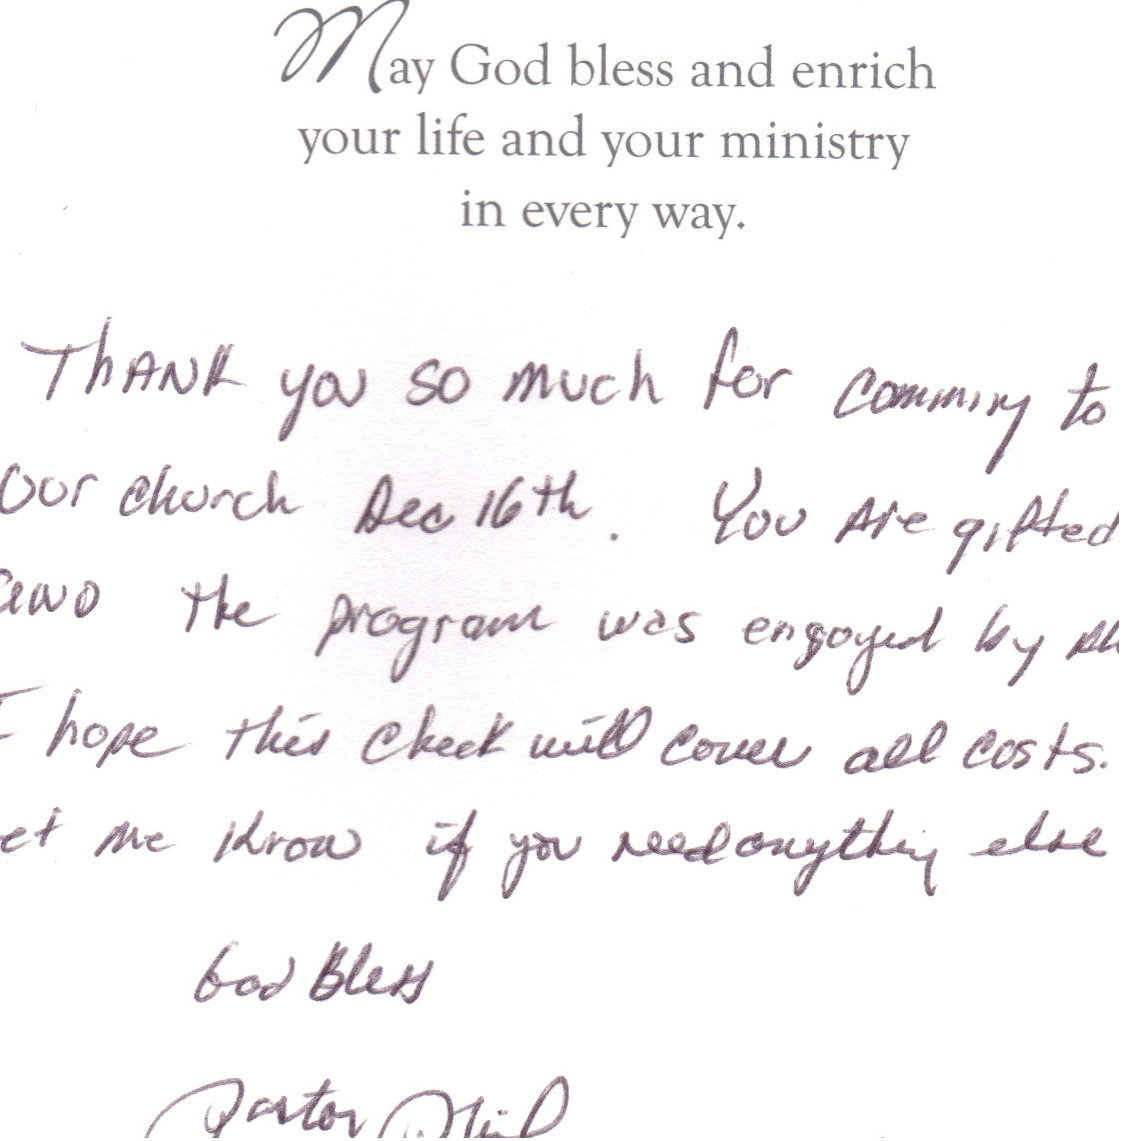 May God bless and enrich
your life and your ministry
in every way.
Thank you so much for comming to
our church Dec 16th. You are gifted
and the program was engoyed by all
I hope this check will cover all costs.
et me know if you need anything else
God Bless
Pastor